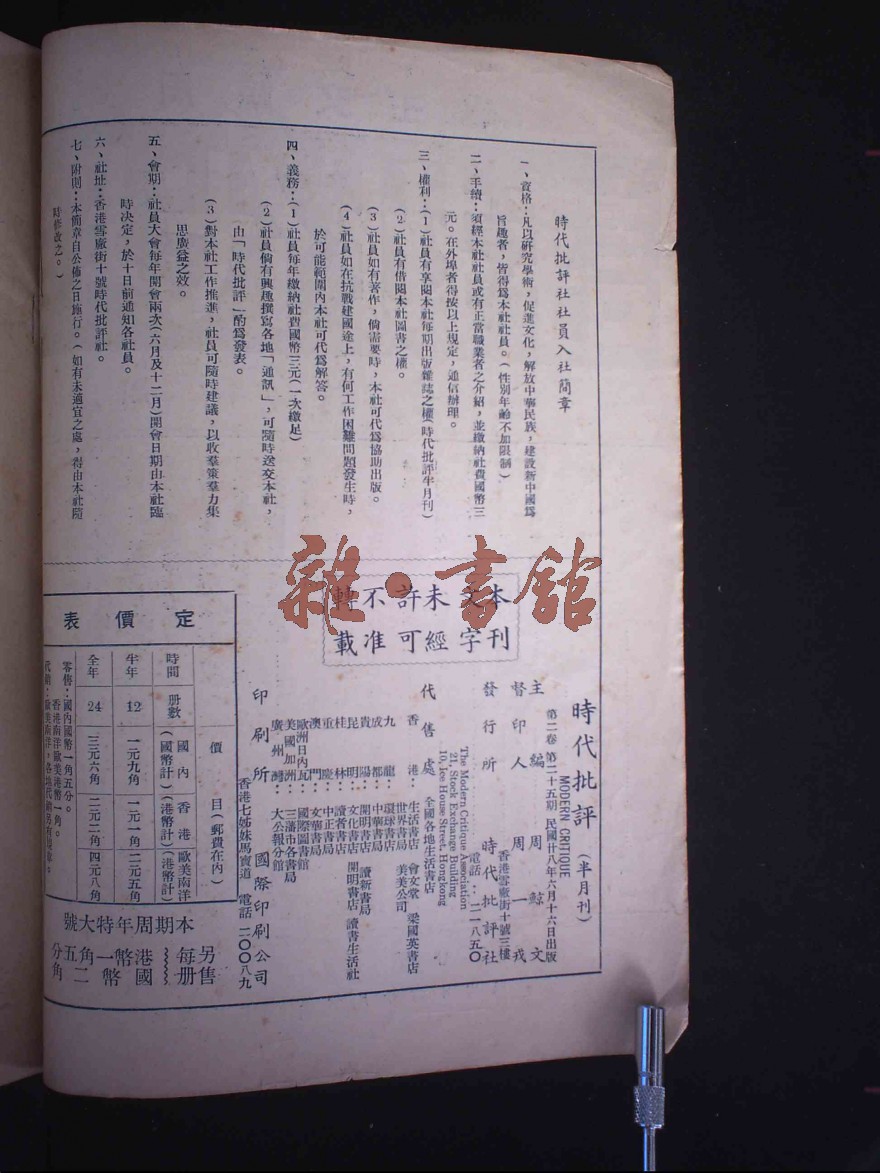 時代批評社社員入社簡章
一、資格：凡以研究學術，促進文化，解放中華民族，建設新中國為
旨趣者，皆得為本社社員。（性別年齡不加限制）
二、手續：須經本社社員或有正當職業者之介紹，並繳納社費國幣三
元。在外埠者得按以上規定，通信辦理。
三、權利：(1)社員有享閱本社每期出版雜誌之權（時代批評半月刊）
(2)社員有借閱本社圖書之權。
(3)社員如有著作，倘需要時，本社可代為協助出版。
(4)社員如在抗戰建國途上，有何工作困難問題發生時，
於可能範圍內本社可代為解答。
四、義務：(1)社員每年繳納社費國幣三元（一次繳足）
(2)社員倘有興趣撰寫各地「通訊」，可隨時送交本社，
由「時代批評」酌為發表。
(3)對本社工作推進，社員可隨時建議，以收羣策羣力集
思廣益之效。
五、會期：社員大會每年開會兩次（六月及十二月）開會日期由本社臨
時決定，於十日前通知各社員。
六、社址：香港雪廠街十號時代批評社。
七、附則：本簡章自公佈之日施行。（如有未適宜之處，得由本社隨
時修改之。）
本刊文字未經許可不准轉載
雜·書館
時代批評（半月刊）
MODERN CRITIQUE
第二卷 第二十五期 民國廿八年六月十六日出版
主編 周鯨文
督印人 周一戎
發行所 時代批評社
香港雪廠街十號三樓
電話：二一八五〇
The Modern Critique Association
21, Stock Exchange Building
10, Ice House Street, Hongkong
代售處 全國各地生活書店
香港：生活書店 會文堂 梁國英書店
世界書局 美美公司
九龍：環球書店
成都：中華書局
貴陽：開明書店 讀新書局
昆明：文化書店 開明書店 讀書生活社
桂林：讀者書店
重慶：中正書局
澳門：文華書局
歐洲日內瓦：國際圖書館
美國加洲：三藩市各書局
廣州灣：大公報分館
印刷所 國際印刷公司
香港七姊妹馬寶道 電話 二〇〇八九
定價表
時間 册數 價目（郵費在內）
國內（國幣計） 香港（港幣計） 歐美南洋（港幣計）
半年 12 一元九角 一元一角 二元五角
全年 24 三元六角 二元二角 四元八角
零售：國內國幣一角五分。
香港南洋歐美港幣一角。
本期周年特大號
另售每册港幣一角五分國幣二角